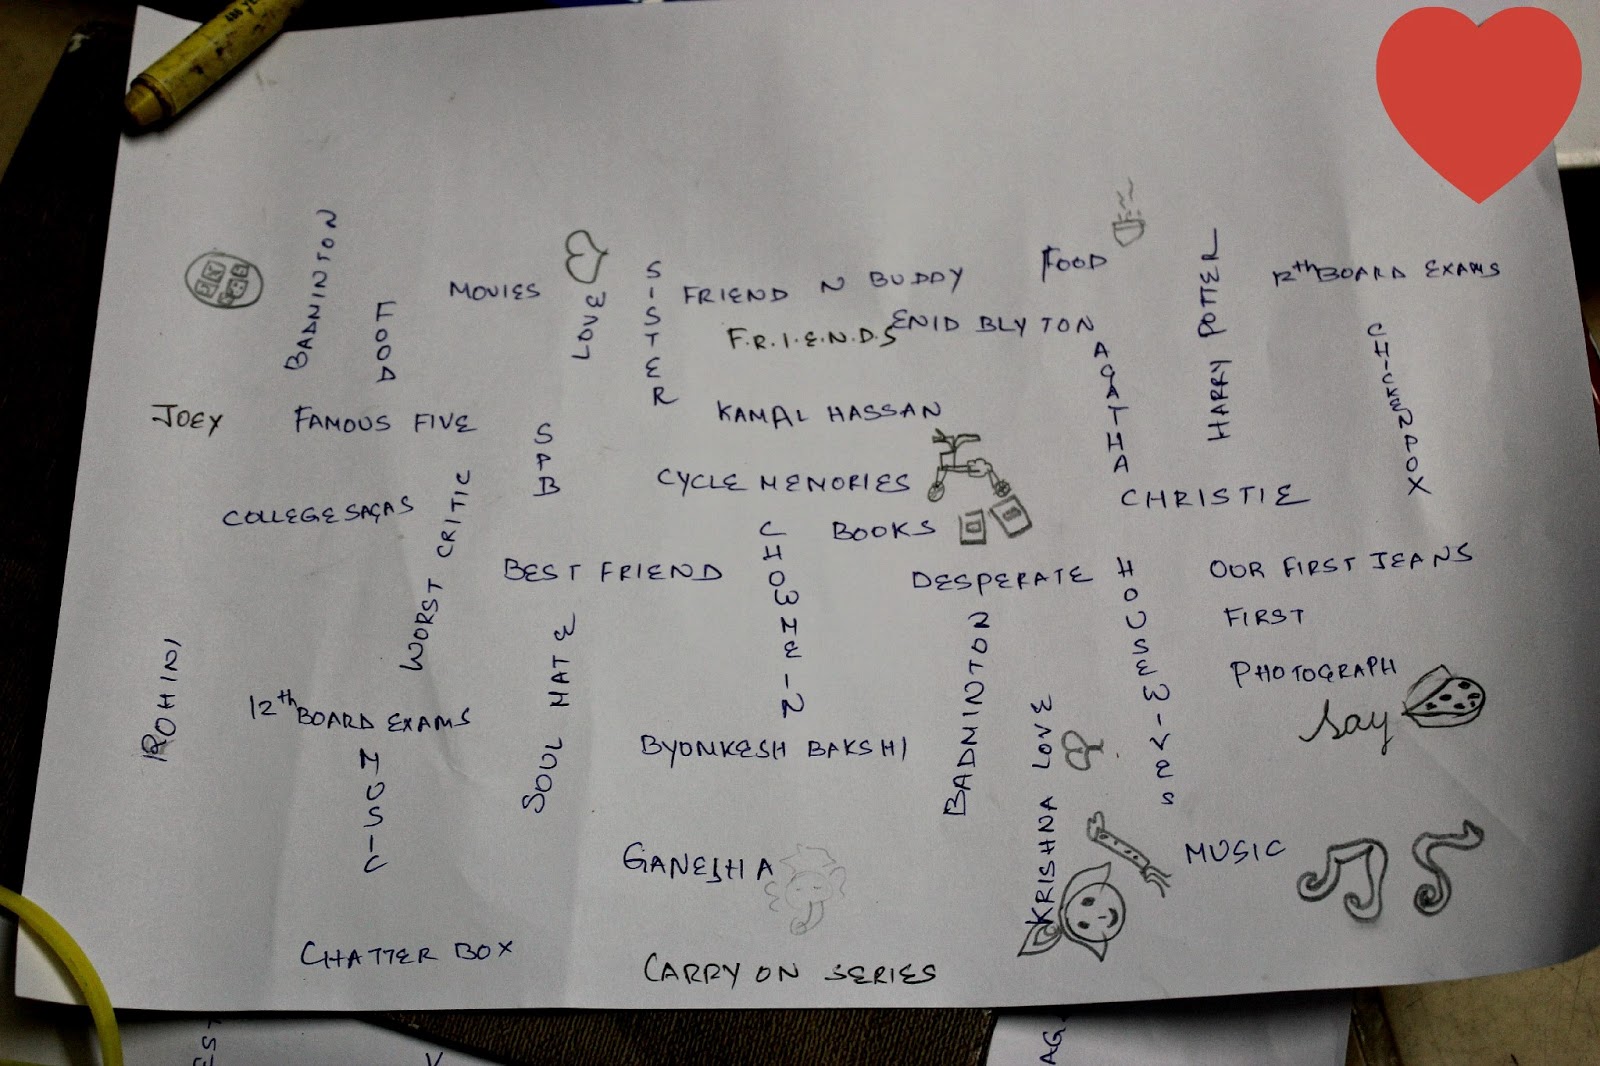 BADMINTON
FOOD
MOVIES
LOVE
SISTER
FRIEND N BUDDY
FOOD
HARRY POTTER
12th BOARD EXAMS
F.R.I.E.N.D.S
ENID BLYTON
AGATHA
CHICKENPOX
JOEY
FAMOUS FIVE
SPB
KAMAL HASSAN
CYCLE MEMORIES
CHRISTIE
COLLEGE SAGAS
WORST CRITIC
BOOKS
CHOZME-N
BEST FRIEND
DESPERATE
HOUSEWIVES
OUR FIRST JEANS
FIRST
PHOTOGRAPH
Say
ROHINI
12th BOARD EXAMS
SOUL MATE
BYOMKESH BAKSHI
BADMINTON
KRISHNA LOVE
MUSIC
MUSIC
GANESHA
CHATTER BOX
CARRY ON SERIES
EST
AG